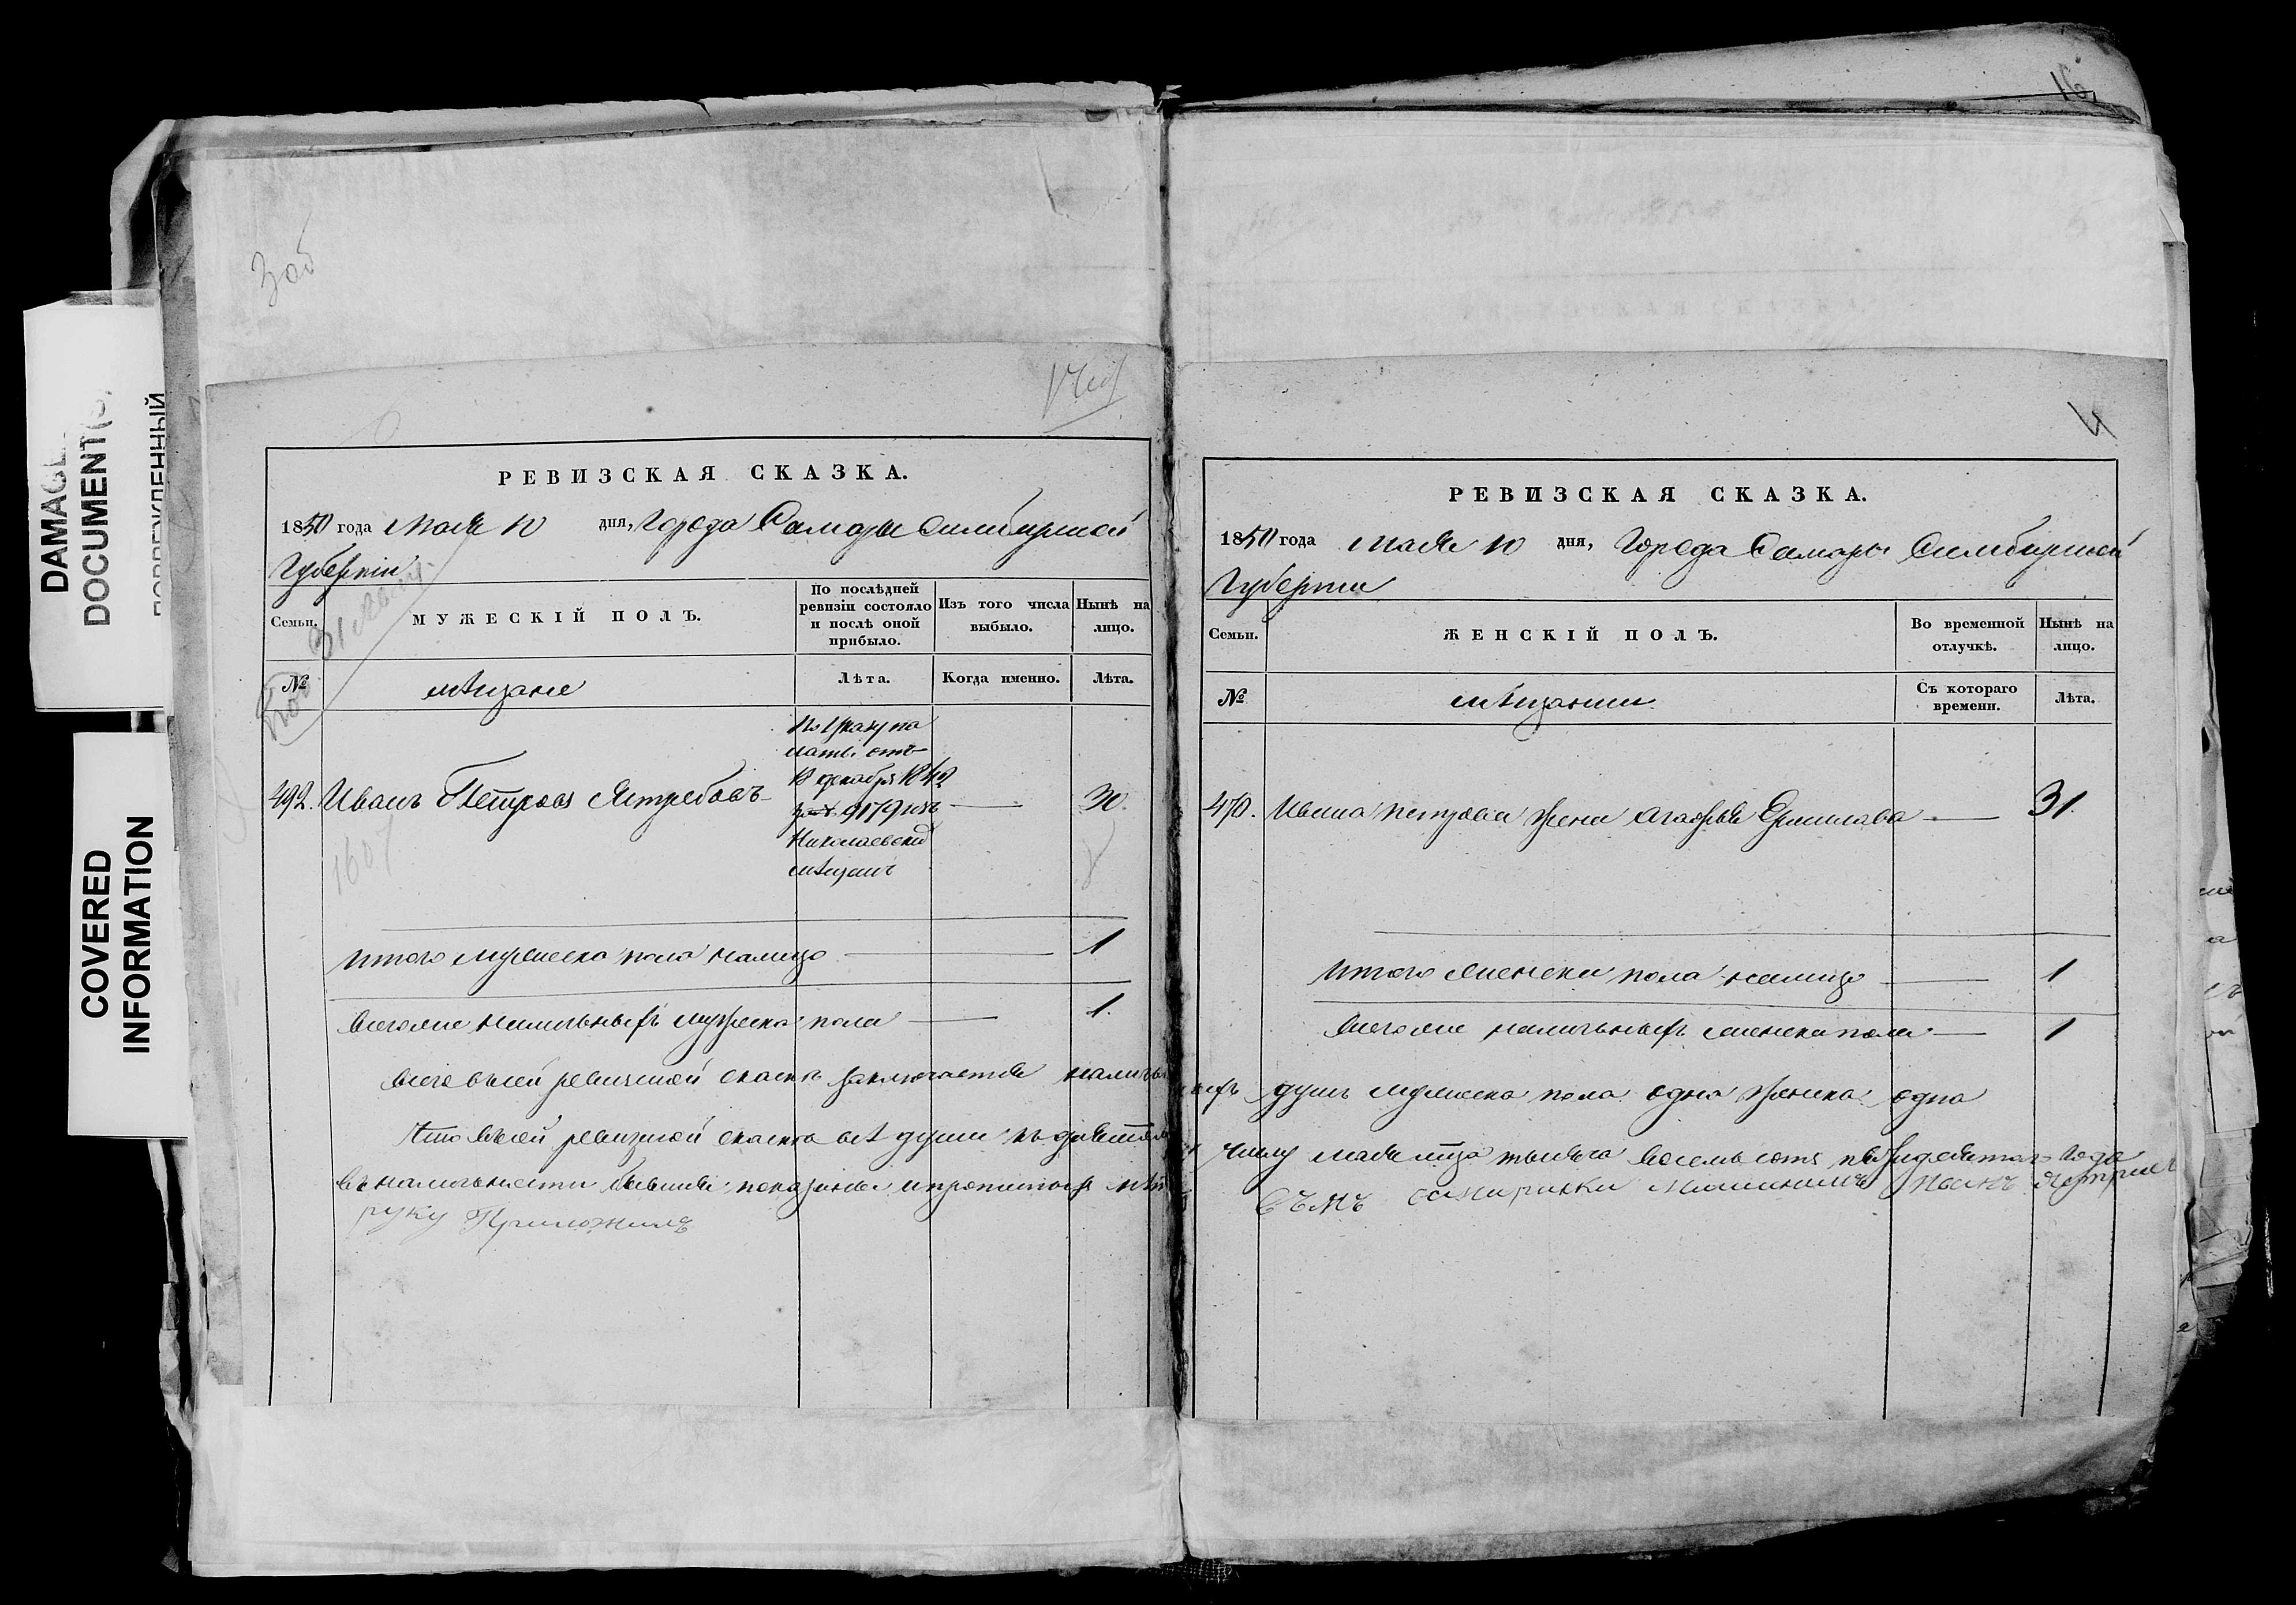 DAMAGE
DOCUMENT(S)
ПОВРЕЖДЕННЫЙ
COVERED
INFORMATION
РЕВИЗСКАЯ СКАЗКА.
1850 года Мая 10 дня, Города Самары Симбирской
Губернии
Семьи.
МУЖЕСКІЙ ПОЛЪ.
По послѣдней
ревизіи состояло
и послѣ оной
прибыло.
Изъ того числа
выбыло.
Нынѣ на
лицо.
№
мѣщане
Лѣта.
Когда именно.
Лѣта.
По Указу па
латы отъ
18 декабря 1842
за № 9179 изъ
Николаевски
мѣщанъ
492. Иванъ Петровъ Ястребовъ 30.
1607
Итого мужеска пола налицо 1
Всего наличныхъ мужеска пола 1.
Всего въ сей ревизской сказкѣ заключается налич
Что въ сей ревизской сказкѣ всѣ души къ
въ наличности бывшія показаны и прописной нѣтъ
руку Приложилъ
16
РЕВИЗСКАЯ СКАЗКА.
1850 года Мая 10 дня, Города Самары Симбирской
Губернии
Семьи.
ЖЕНСКІЙ ПОЛЪ.
Во временной
отлучкѣ.
Нынѣ на
лицо.
№
мѣщанки
Съ котораго
времени.
Лѣта.
470. Ивана Петрова жена Агафья Ермилава 31.
Итого женска пола налицо 1
Всего наличныхъ женска пола 1
ныхъ душъ мужеска пола одна женска одна
числу мая мца тысяча восемь сотъ пятидесятаго года
въ мъ Иванъ